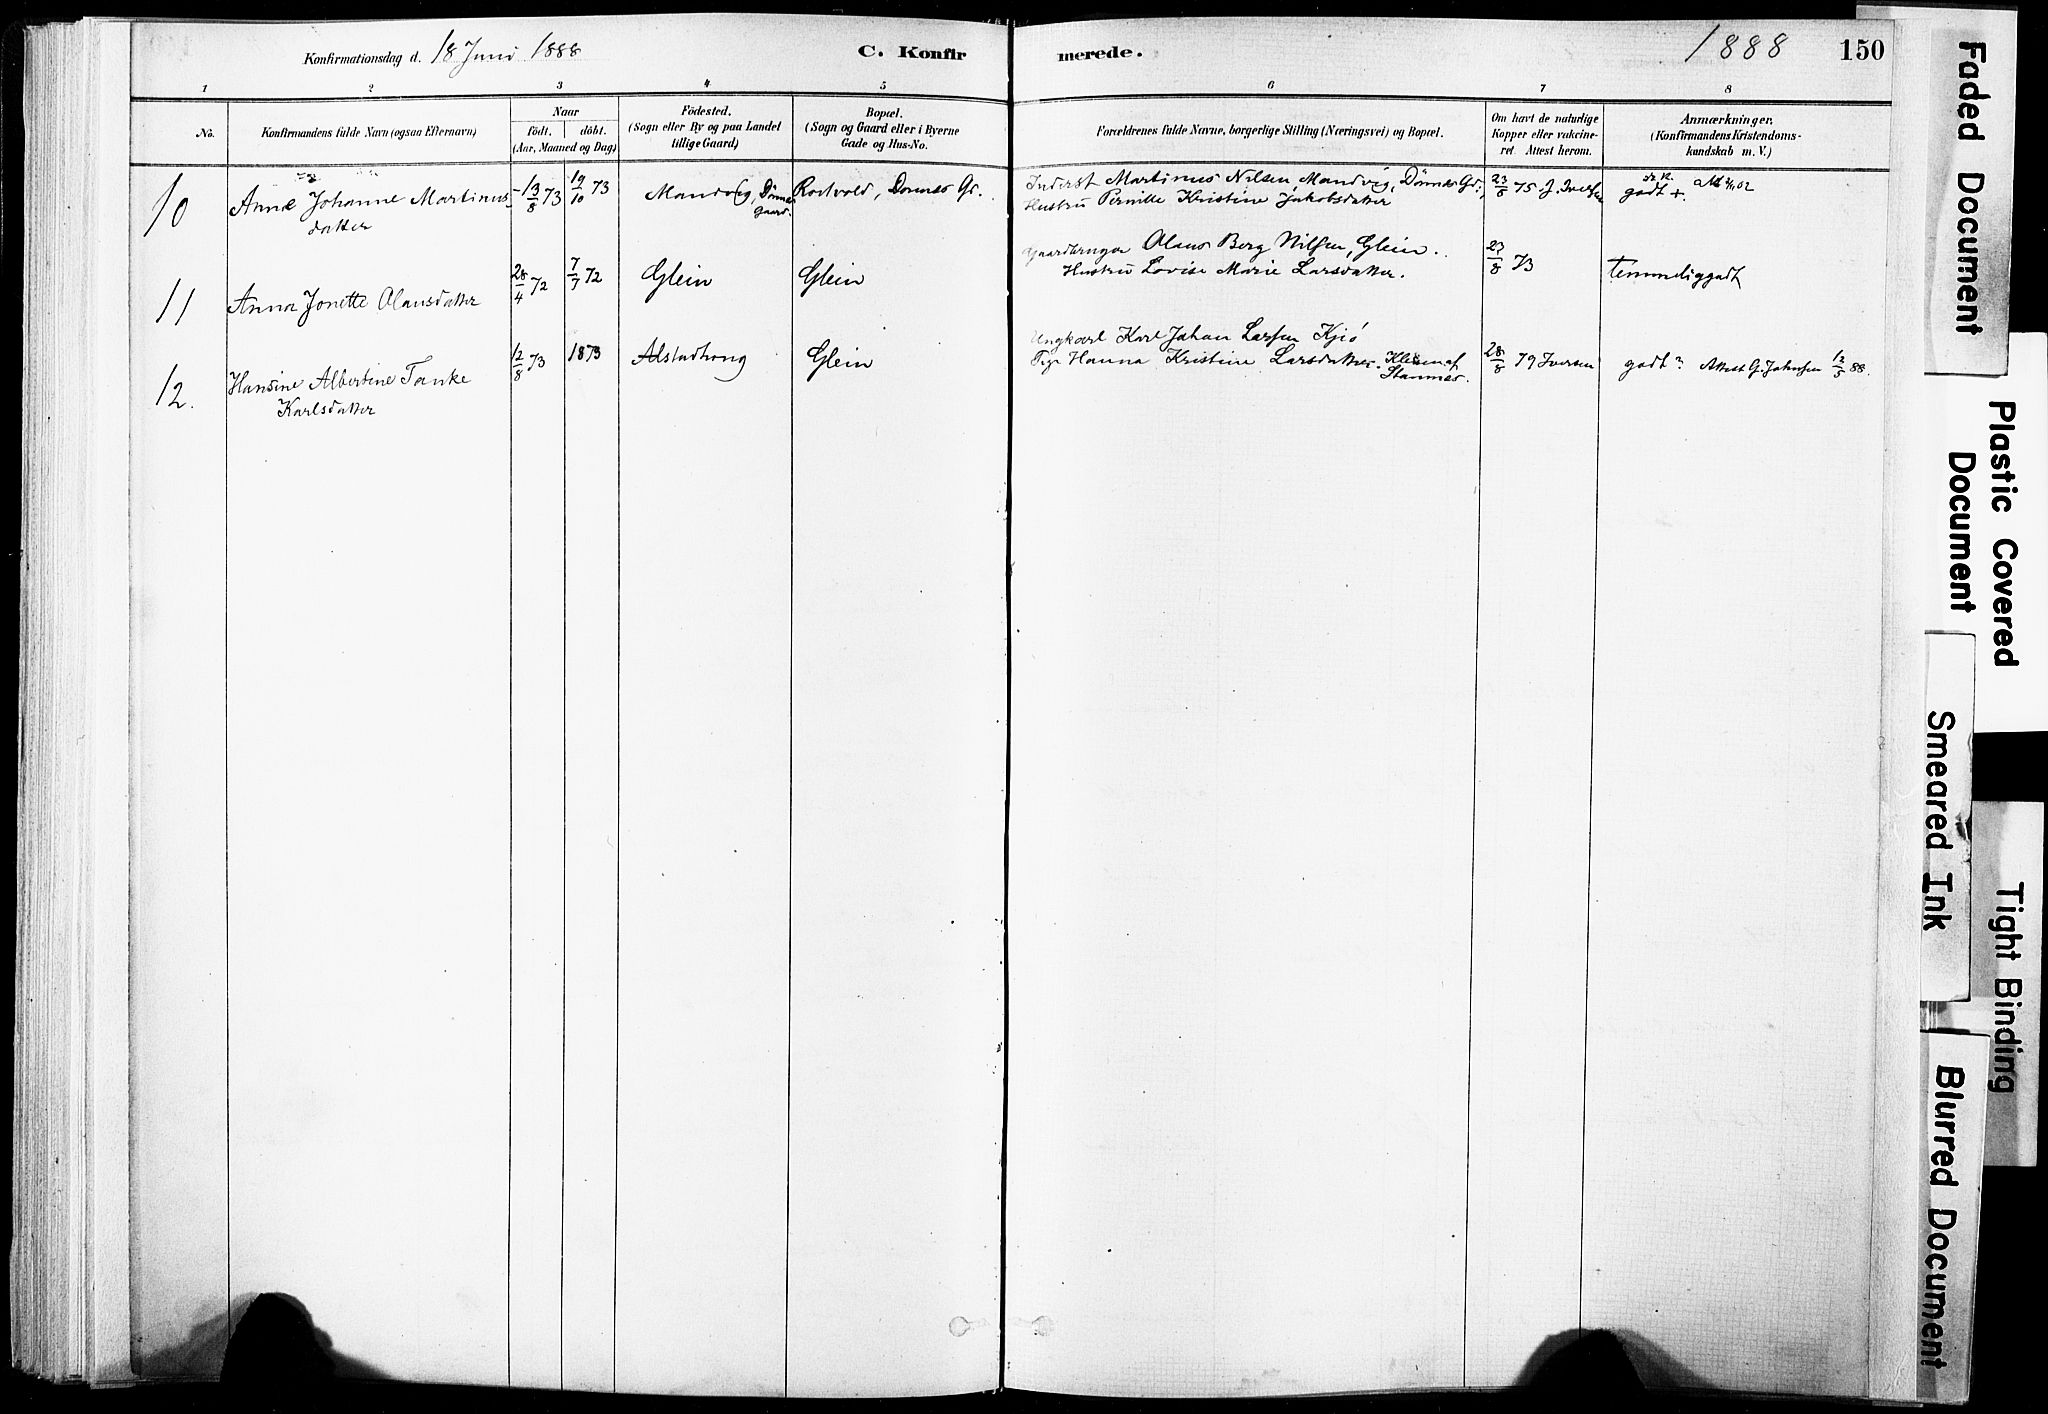 Konfirmationsdag d. 18 Juni 1888
C. Konfir
merede.
1888
150
1 2 3 4 5 6 7 8
No.
Konfirmandens fulde Navn (ogsaa Efternavn)
Naar
födt. döbt.
(Aar, Maaned og Dag)
Födested.
(Sogn eller By og paa Landet
tillige Gaard)
Bopæl.
(Sogn og Gaard eller i Byerne
Gade og Hus-No.
Forældrenes fulde Navne, borgerlige Stilling (Næringsvei) og Bopæl.
Om havt de naturlige
Kopper eller vakcine-
ret. Attest herom.
Anmærkninger.
(Konfirmandens Kristendoms-
kundskab m. V.)
10
Anne Johanne Martinus-
datter
13/8 73
19/10 73
Mandvig, Dönnes
Gaard.
Rortvold, Dönnes Gd.
Inderst Martinus Nilsen Mandvig, Dönnes Gd.,
Hustru Pernille Kristine Jakobsdatter
23/8 75 J. Iversen
godt +.
11
Anna Jonette Olausdatter
28/4 72
7/7 72
Glein
Glein
Gaardbruger Olaus Berg Nilsen, Glein.
Hustru Lovise Marie Larsdatter.
23/8 73
temmelig godt
12.
Hansine Albertine Tanke
Karlsdatter
12/8 73
1873
Alstadhoug
Glein
Ungkarl Karl Johan Larsen Kjö
Pige Hanna Kristine Larsdatter
Stamnes.
28/8 79 Iversen
godt? Attest G. Johnsen 12/5 88.
Faded Document
Plastic Covered
Document
Smeared Ink
Tight Binding
Blurred Document